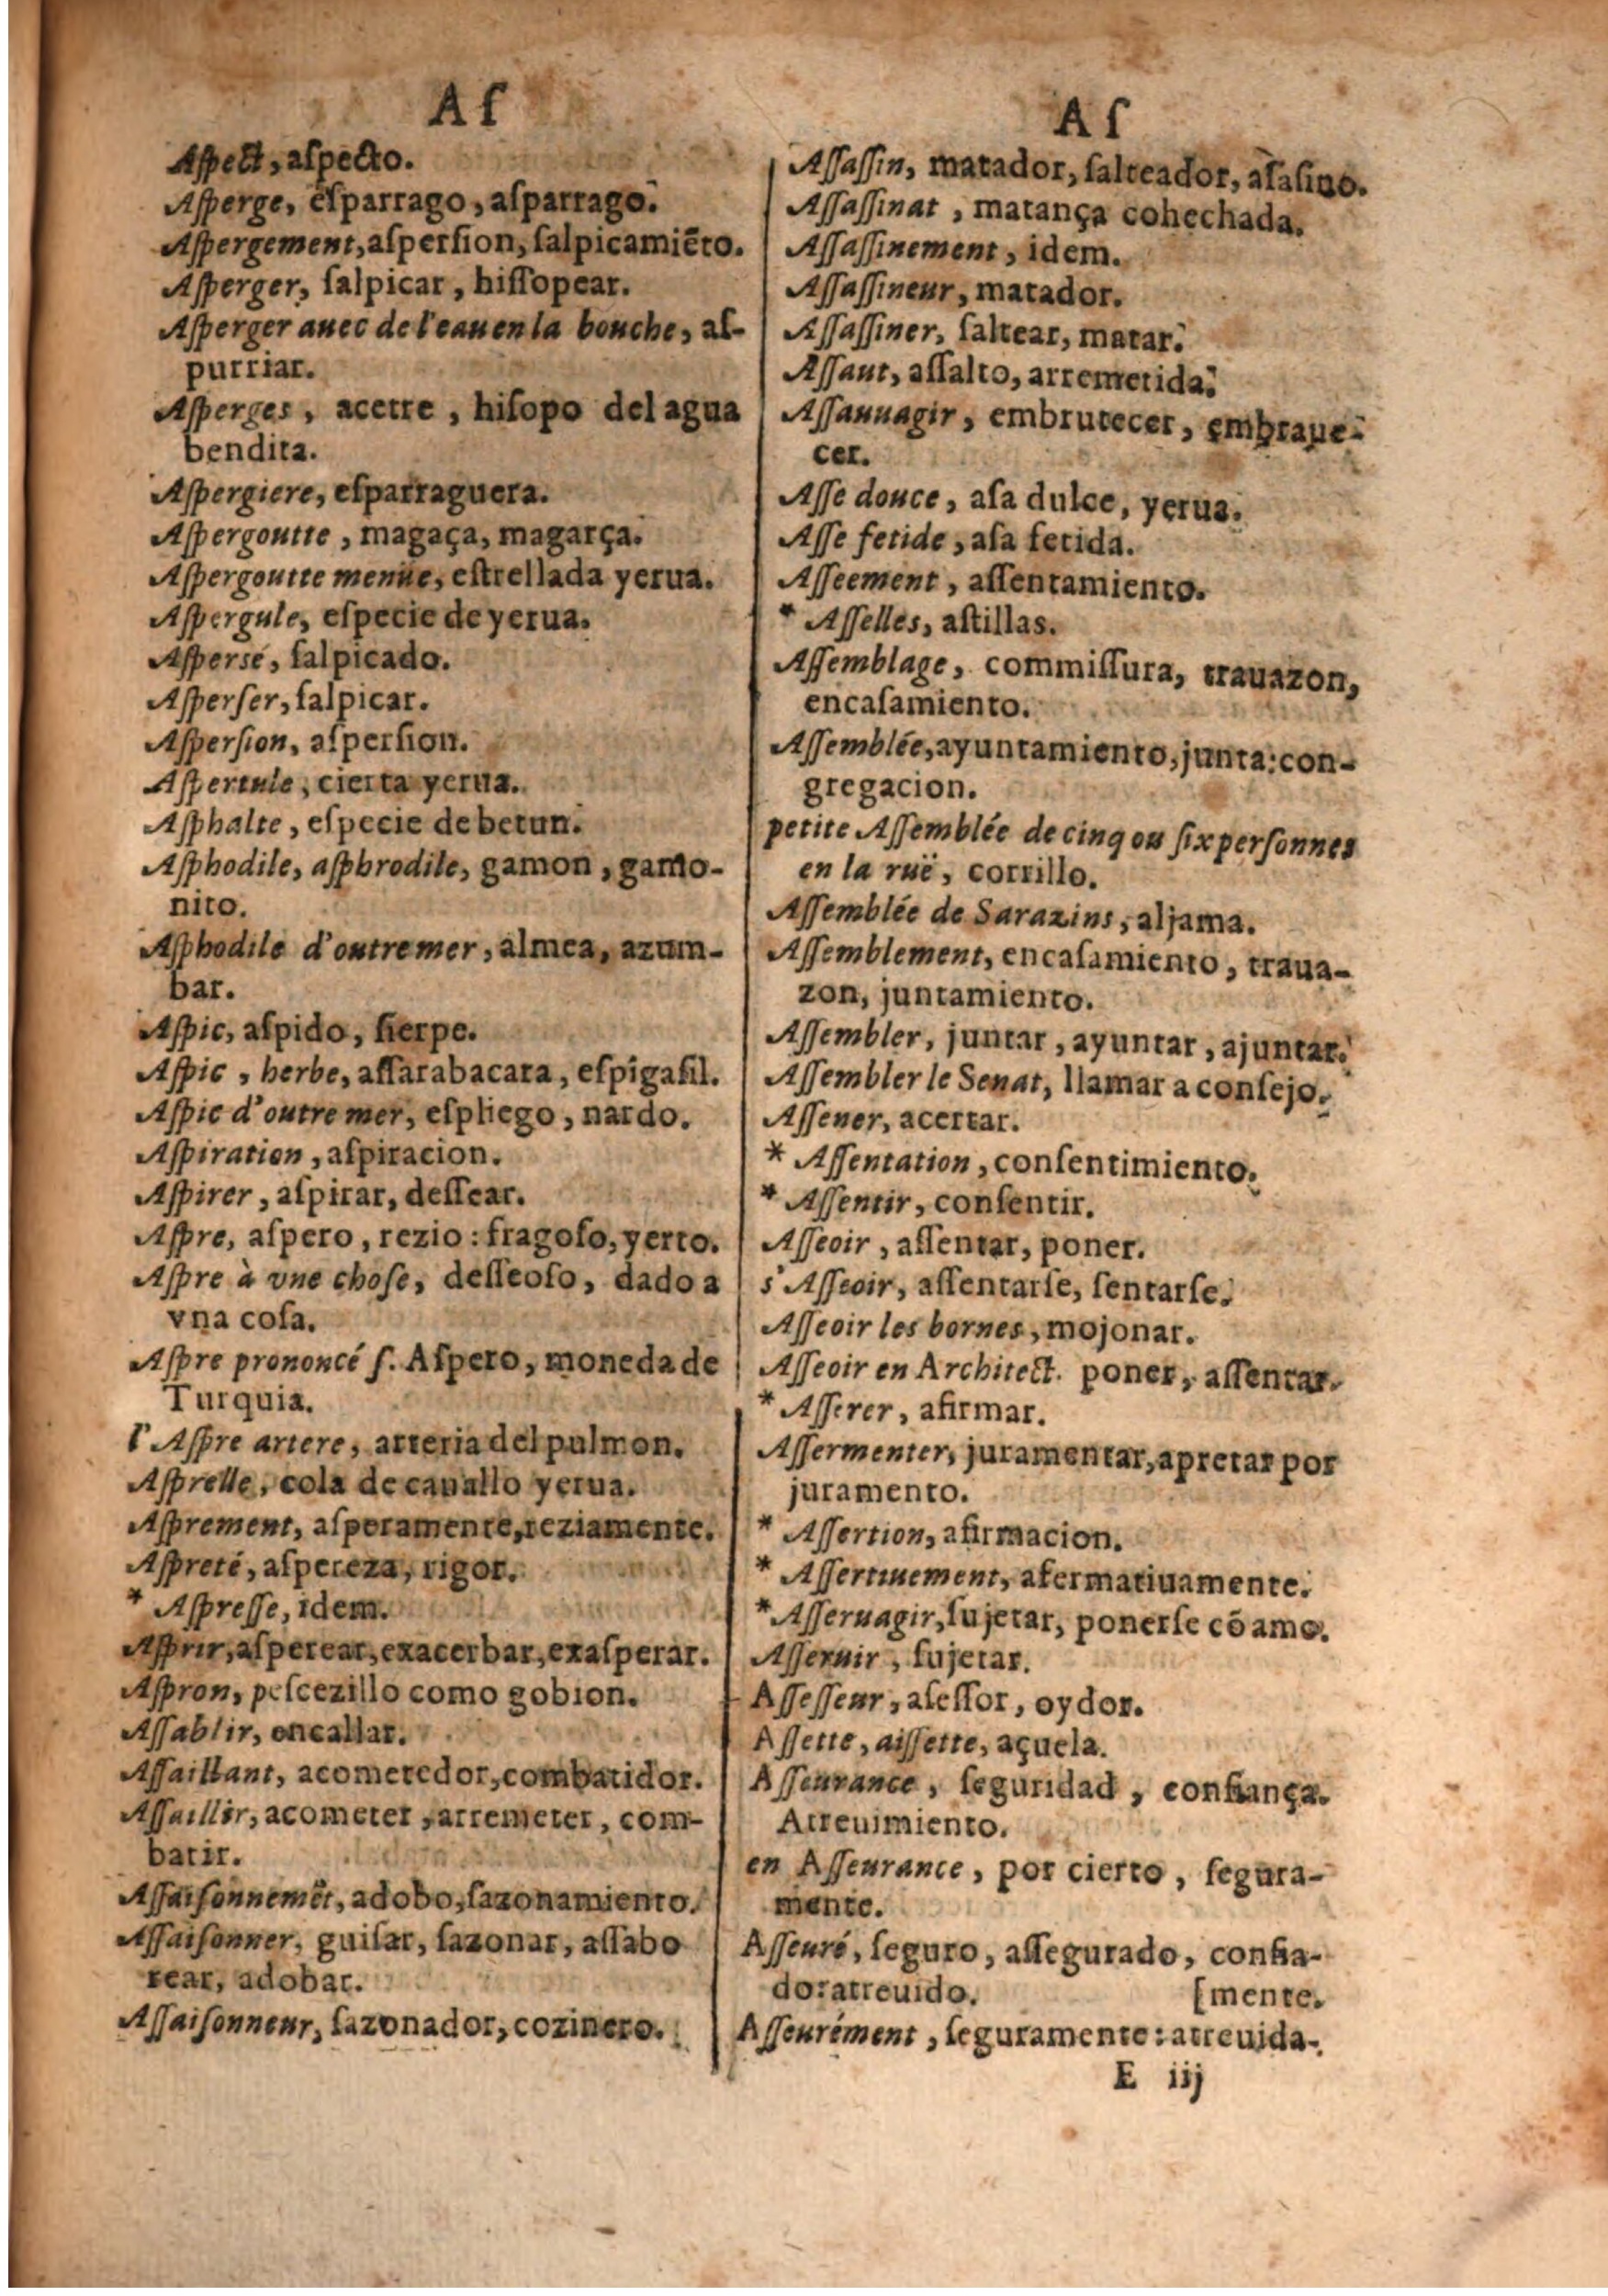 Aſ
Aſpect, aſpecto.
Aſperge, eſparrago, aſparrago.
Aſpergement, aſperſion, ſalpicamiẽto.
Aſperger, ſalpicar, hiſſopear.
Aſperger auec de l'eau en la bouche, aſ-
purriar.
Aſperges, acetre, hiſopo del agua
bendita.
Aſpergiere, eſparraguera.
Aſpergoutte, magaça, magarça.
Aſpergoutte menüe, eſtrellada yerua.
Aſpergule, eſpecie de yerua.
Aſpersé, ſalpicado.
Aſperſer, ſalpicar.
Aſperſion, aſperſion.
Aſpertule, cierta yerua.
Aſphalte, eſpecie de betun.
Aſphodile, aſphrodile, gamon, gamo-
nito.
Aſphodile d'outre mer, almea, azum-
bar.
Aſpic, aſpido, ſierpe.
Aſpic, herbe, aſſarabacara, eſpigaſil.
Aſpic d'outre mer, eſpliego, nardo.
Aſpiration, aſpiracion.
Aſpirer, aſpirar, deſſear.
Aſpre, aſpero, rezio: fragoſo, yerto.
Aſpre à vne choſe, deſſeoſo, dado a
vna coſa.
Aſpre prononcé ſ. Aſpero, moneda de
Turquia.
l'Aſpre artere, arteria del pulmon.
Aſprelle, cola de cauallo yerua.
Aſprement, aſperamente, reziamente.
Aſpreté, aſpereza, rigor.
* Aſpreſſe, idem.
Aſprir, aſperear, exacerbar, exaſperar.
Aſpron, peſcezillo como gobion.
Aſſablir, encallar.
Aſſaillant, acometedor, combatidor.
Aſſaillir, acometer, arremeter, com-
batir.
Aſſaiſonnemẽt, adobo, ſazonamiento.
Aſſaiſonner, guiſar, ſazonar, aſſabo
rear, adobar.
Aſſaiſonneur, ſazonador, cozinero.
Aſ
Aſſaſſin, matador, ſalteador, aſaſino.
Aſſaſſinat, matança cohechada.
Aſſaſſinement, idem.
Aſſaſſineur, matador.
Aſſaſſiner, ſaltear, matar.
Aſſaut, aſſalto, arremetida.
Aſſauuagir, embrutecer, embraue-
cer.
Aſſe douce, aſa dulce, yerua.
Aſſe fetide, aſa fetida.
Aſſeement, aſſentamiento.
* Aſſelles, aſtillas.
Aſſemblage, commiſſura, trauazon,
encaſamiento.
Aſſemblée, ayuntamiento, junta: con-
gregacion.
petite Aſſemblée de cinq ou ſix perſonnes
en la ruë, corrillo.
Aſſemblée de Sarazins, aljama.
Aſſemblement, encaſamiento, traua-
zon, juntamiento.
Aſſembler, juntar, ayuntar, ajuntar.
Aſſembler le Senat, llamar a conſejo.
Aſſener, acertar.
* Aſſentation, conſentimiento.
* Aſſentir, conſentir.
Aſſeoir, aſſentar, poner.
s'Aſſeoir, aſſentarſe, ſentarſe.
Aſſeoir les bornes, mojonar.
Aſſeoir en Architect. poner, aſſentar.
* Aſſerer, afirmar.
Aſſermenter, juramentar, apretar por
juramento.
* Aſſertion, afirmacion.
* Aſſertiuement, afermatiuamente.
* Aſſeruagir, ſujetar, ponerſe cõ amo.
Aſſeruir, ſujetar.
Aſſeſſeur, aſeſſor, oydor.
Aſſette, aiſſette, açuela.
Aſſeurance, ſeguridad, confiança.
Atreuimiento.
en Aſſeurance, por cierto, ſegura-
mente.
Aſſeuré, ſeguro, aſſegurado, confia-
do: atreuido. [mente.
Aſſeurément, ſeguramente: atreuida-
E iij